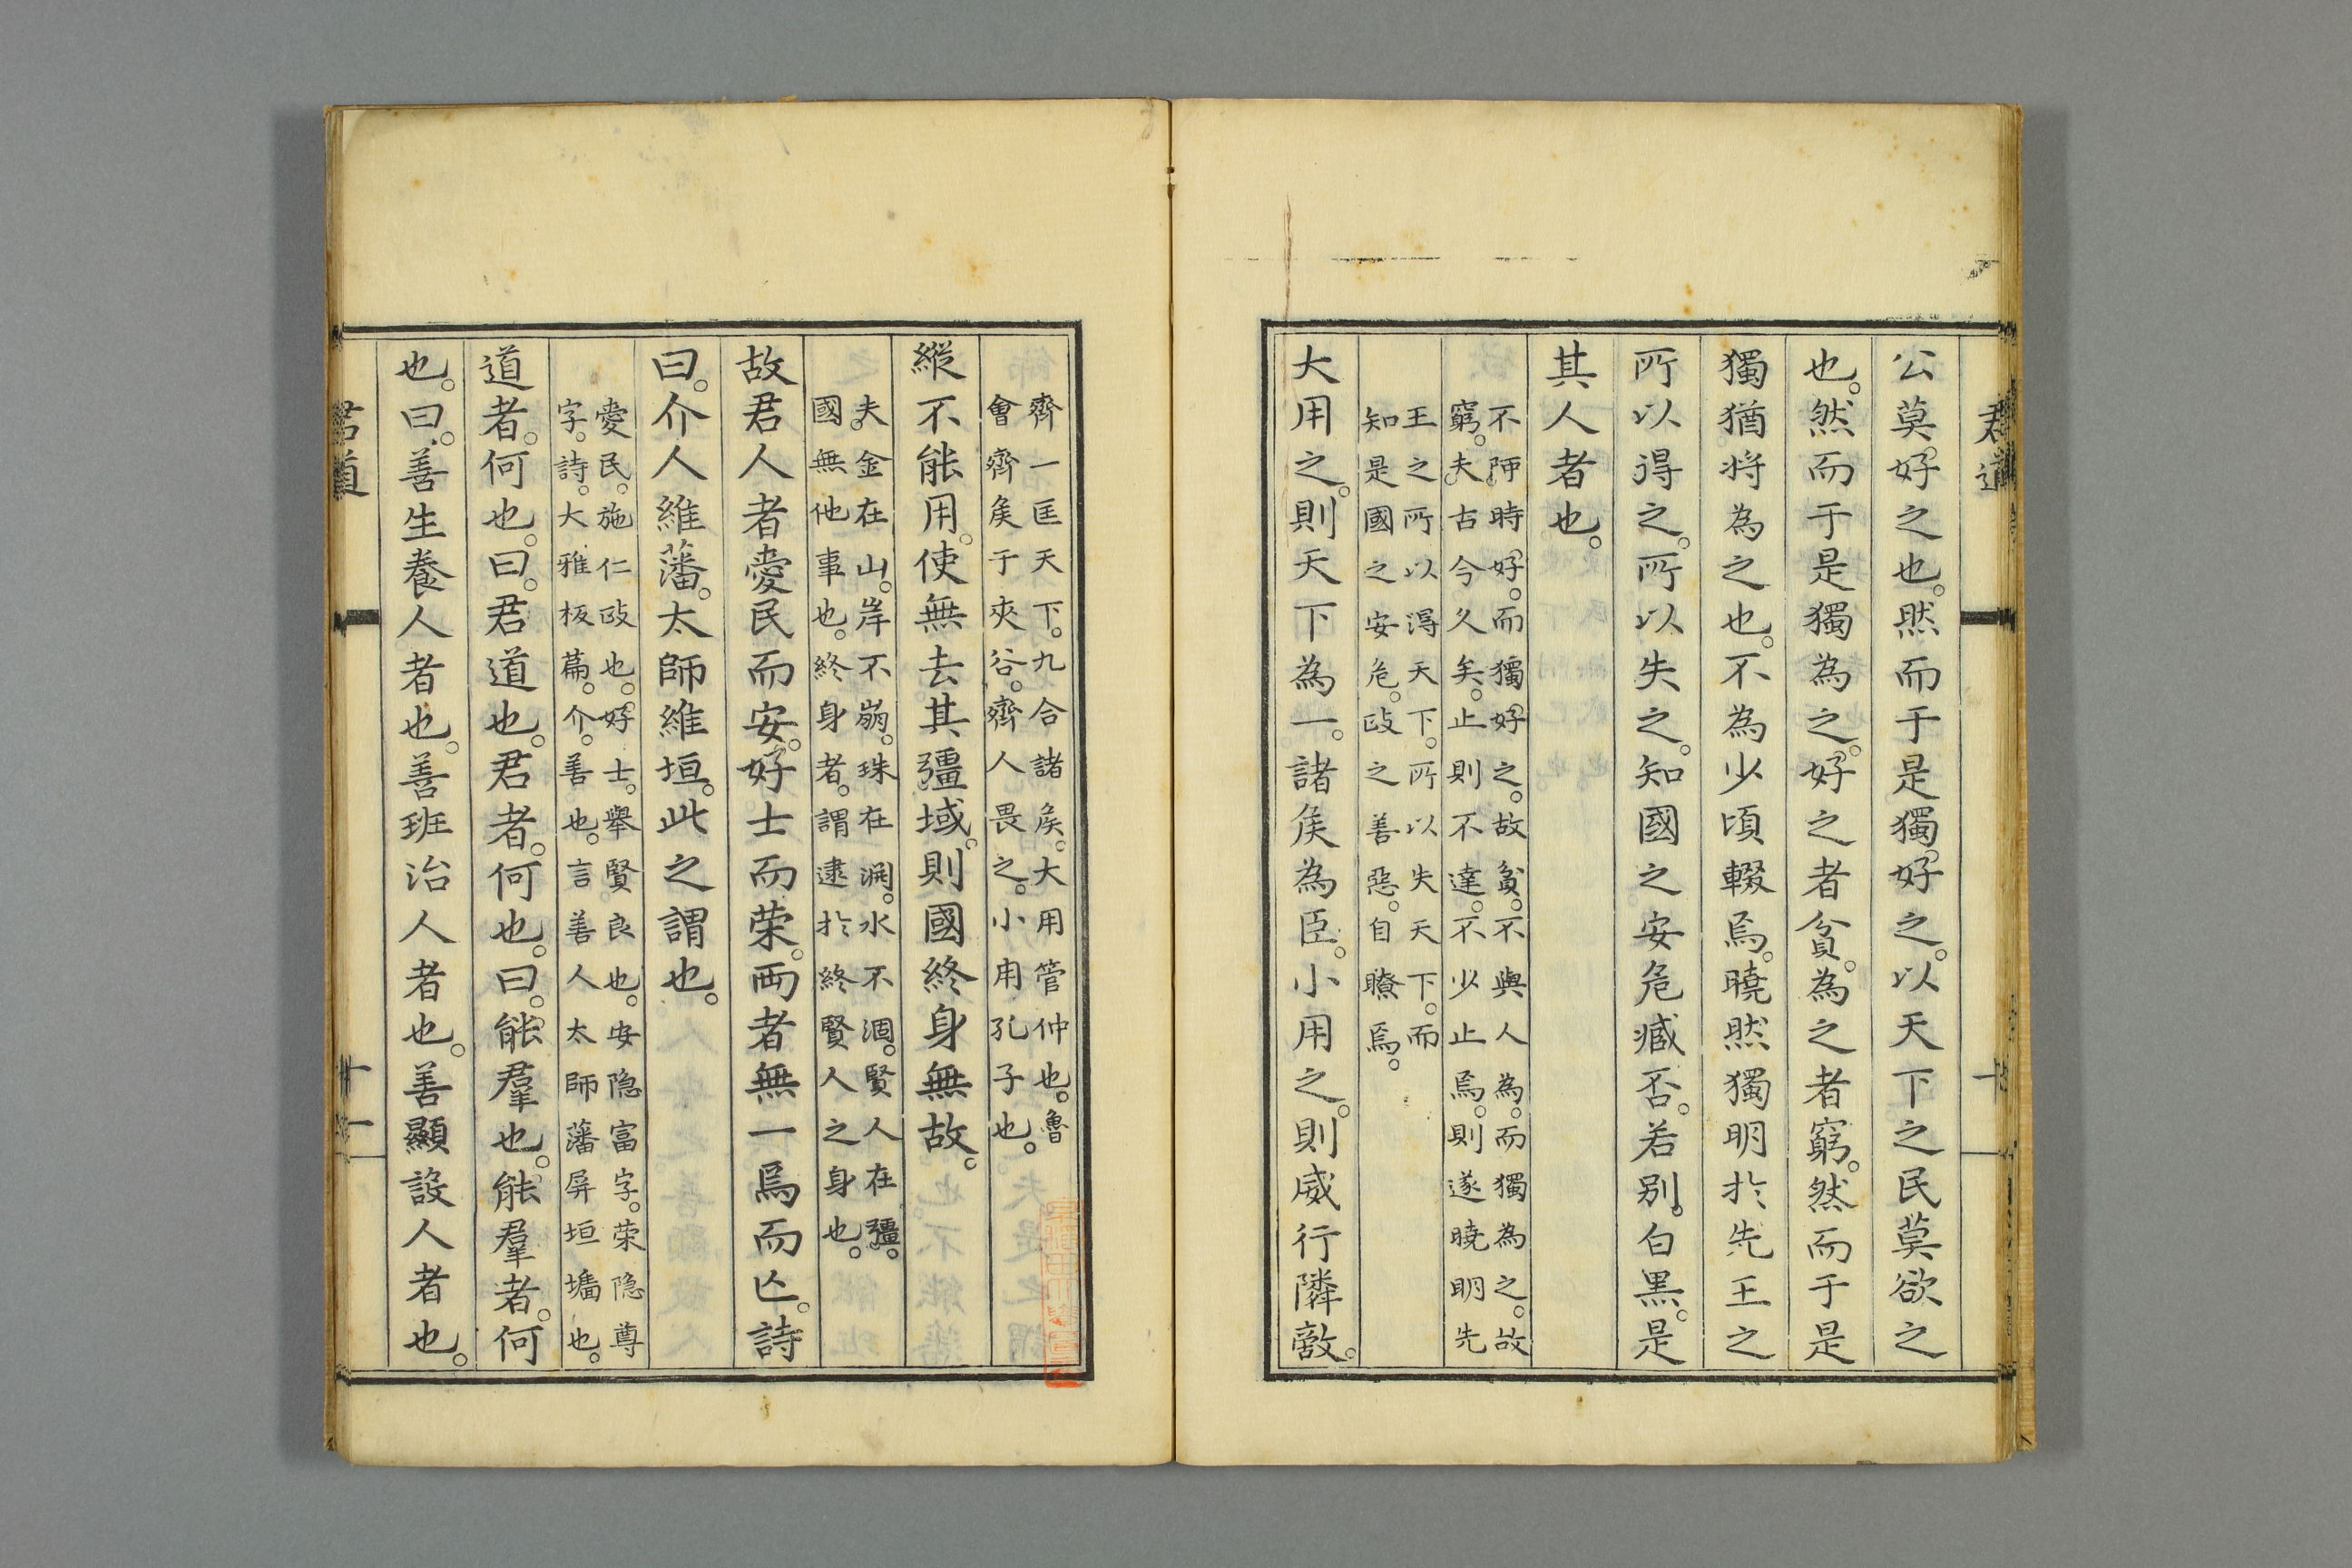 君道
公莫好之也。然而于是獨好之。以天下之民莫欲之
也。然而于是獨為之。好之者貧。為之者窮。然而于是
獨猶将為之也。不為少頃輟焉。曉然獨明於先王之
所以得之。所以失之。知國之安危臧否。若别白黒。是
其人者也。
不啚時好。而獨好之。故貧。不與人為。而獨為之。故
窮。夫古今久矣。止則不達。不少止焉。則遂曉明先
王之所以得天下。所以失天下。而
知是國之安危。政之善惡。自瞭焉。
大用之。則天下為一。諸矦為臣。小用之。則威行隣敵。
十
齊一匡天下。九合諸矦。大用管仲也。魯
會齊矦于夾谷。齊人畏之。小用孔子也。
縱不能用。使無去其彊域。則國終身無故。
夫金在山。岸不崩。珠在淵。水不涸。賢人在彊。
國無他事也。終身者。謂逮於終賢人之身也。
故君人者愛民而安。好士而荣。兩者無一焉而亡。詩
曰。介人維藩。太師維垣。此之謂也。
愛民。施仁政也。好士。舉賢良也。安隐富字。荣隐尊
字。詩。大雅板篇。介。善也。言善人太師藩屏垣墉也。
道者。何也。曰。君道也。君者。何也。曰。能羣也。能羣者。何
也。曰。善生養人者也。善班治人者也。善顯設人者也。
君道
十一